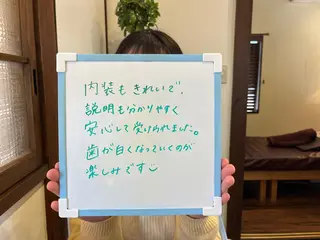 内装もきれいで、
説明も分かりやすく
安心して受けられました。
歯が白くなっていくのが
楽しみです